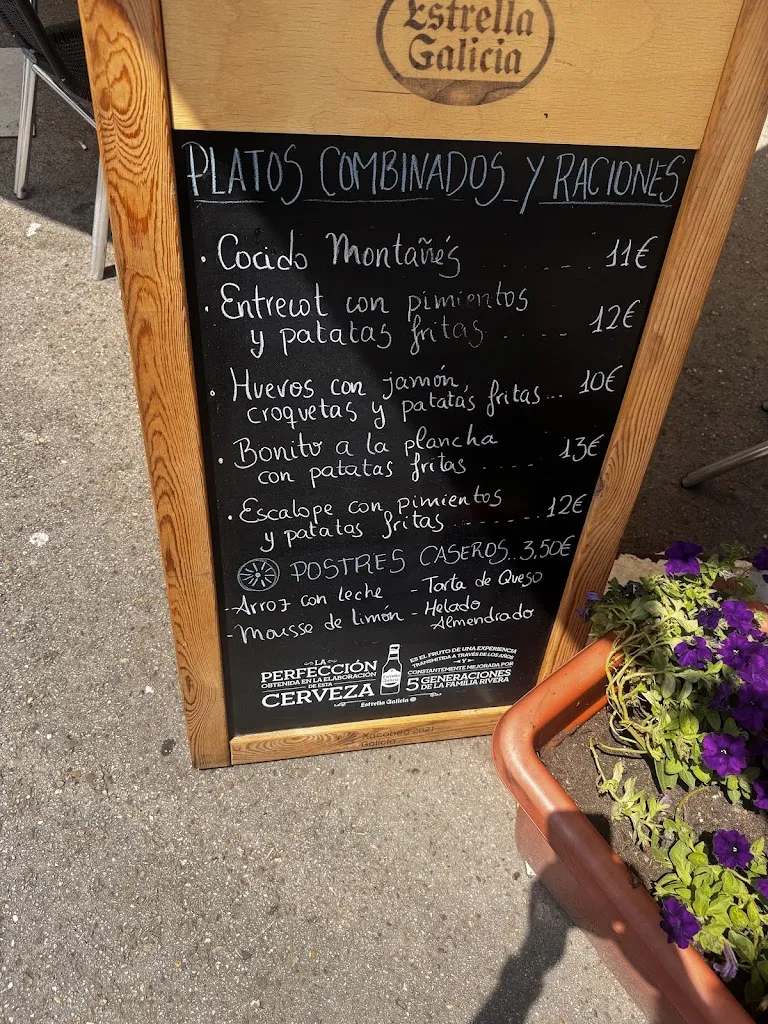 Estrella
Galicia
PLATOS COMBINADOS Y RACIONES
· Cocido Montañés ........ 11€
· Entrecot con pimientos
y patatas fritas ........ 12€
· Huevos con jamón,
croquetas y patatas fritas... 10€
· Bonito a la plancha
con patatas fritas ........ 13€
· Escalope con pimientos
y patatas fritas ........ 12€
POSTRES CASEROS..3,50€
-Arroz con leche - Tarta de Queso
-Mousse de limón - Helado
Almendrado
LA
PERFECCIÓN
OBTENIDA EN LA ELABORACIÓN
DE ESTA
CERVEZA
ES EL FRUTO DE UNA EXPERIENCIA
TRANSMITIDA A TRAVÉS DE LOS AÑOS
Y
CONSTANTEMENTE MEJORADA POR
5 GENERACIONES
DE LA FAMILIA RIVERA
Estrella Galicia
Xacobeo 2021
Galicia